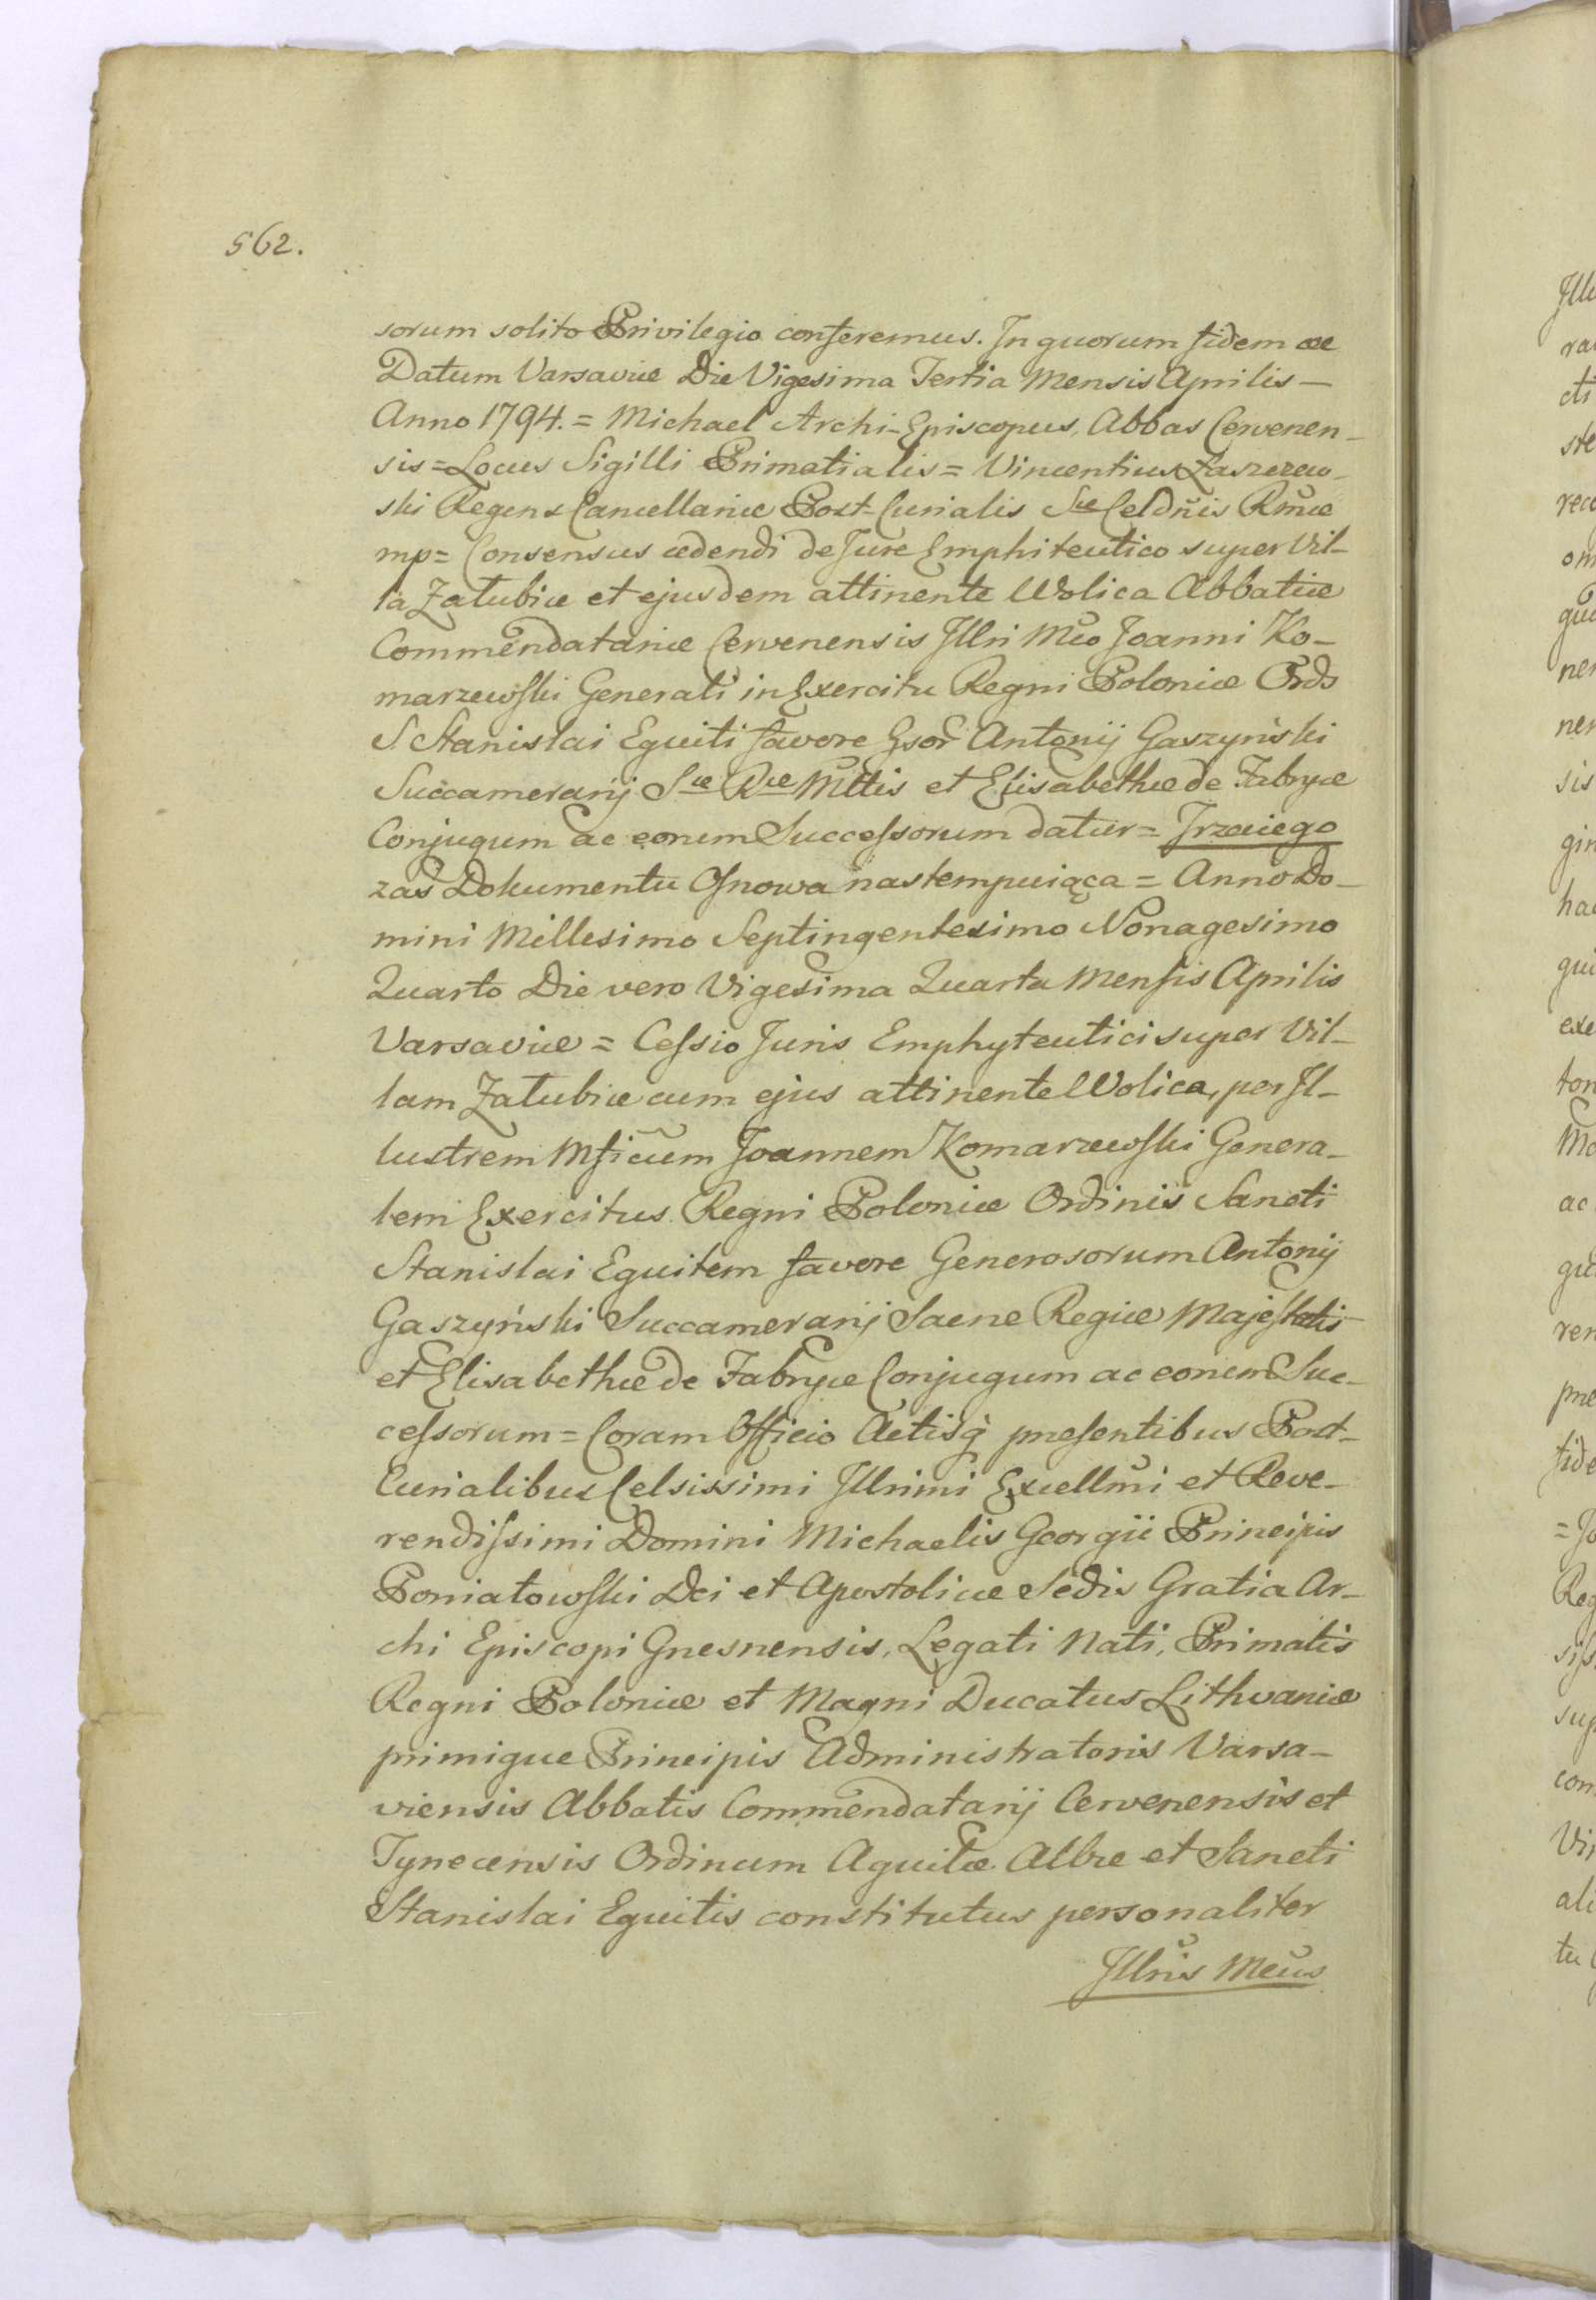 562.
sorum solito Privilegio conferemus. In quorum fidem &c
Datum Varsaviæ Die Vigesima Tertia Mensis Aprilis —
Anno 1794. = Michael Archi-Episcopus, Abbas Cervenen-
sis = Locus Sigilli Primatialis = Vincentius Łaszczew-
ski Regens Cancellariæ Post-Curialis Suæ Celdnis Rmæ
mp = Consensus cedendi de Jure Emphiteutico super Vil-
la Załubice et ejusdem attinente Wolica Abbatiæ
Commendatariæ Cervenensis Illri Mco Joanni Ko-
marzewski Generali in Exercitu Regni Poloniæ Ords
S Stanislai Equiti favore Gsor Antonij Gaszyński
Succamerarij Sæ Ræ Mttis et Elisabethæ de Fabryce
Conjugum ac eorum Successorum datur = Trzeciego
zaś Dokumentu Osnowa nastempuiąca = Anno Do-
mini Millesimo Septingentesimo Nonagesimo
Quarto Die vero Vigesima Quarta Mensis Aprilis
Varsaviæ = Cessio Juris Emphyteutici super Vil-
lam Załubice cum ejus attinente Wolica, per Il-
lustrem Mficum Joannem Komarzewski Genera-
lem Exercitus Regni Poloniæ Ordinis Sancti
Stanislai Equitem favore Generosorum Antonij
Gaszyński Succamerarij Sacræ Regiæ Majestatis
et Elisabethæ de Fabryce Conjugum ac eorum Suc-
cessorum = Coram Officio Actisq presentibus Post-
Curialibus Celsissimi Illrimi Excellmi et Reve-
rendissimi Domini Michaelis Georgii Principis
Poniatowski Dei et Apostolicæ Sedis Gratia Ar-
chi Episcopi Gnesnensis, Legati Nati, Primatis
Regni Poloniæ et Magni Ducatus Lithvaniæ
primique Principis Administratoris Varsa-
viensis Abbatis Commendatarij Cervenensis et
Tynecensis Ordinum Aquilæ Albæ et Sancti
Stanislai Equitis constitutus personaliter
Illris Mcus